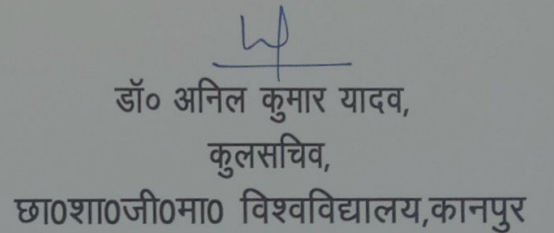 डॉ० अनिल कुमार यादव,
कुलसचिव,
छा0शा0जी0मा0 विश्वविद्यालय,कानपुर